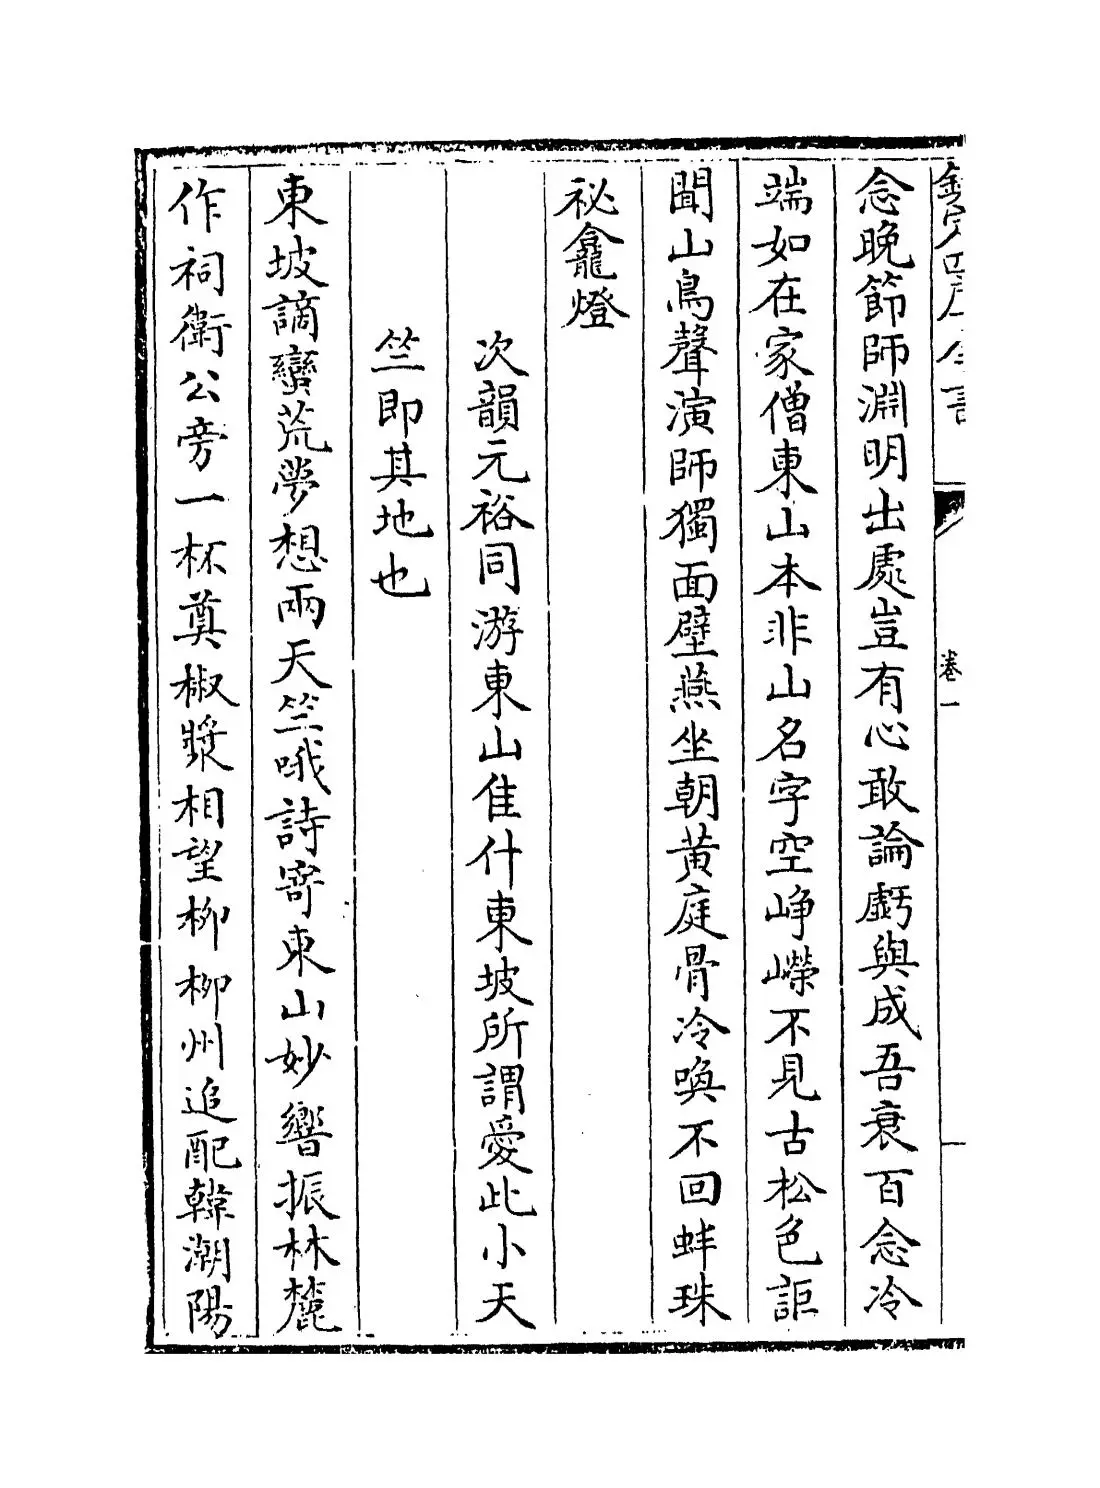 欽定四庫全書
卷一
念晚節師淵明出處豈有心敢論虧與成吾衰百念冷
端如在家僧東山本非山名字空崢嶸不見古松色詎
聞山鳥聲演師獨面壁燕坐朝黄庭骨冷喚不回蚌珠
祕龕燈
次韻元裕同游東山隹什東坡所謂愛此小天
竺即其地也
東坡謫蠻荒夢想兩天竺哦詩寄東山妙響振林麓
作祠衛公旁一杯奠椒漿相望柳柳州追配韓潮陽